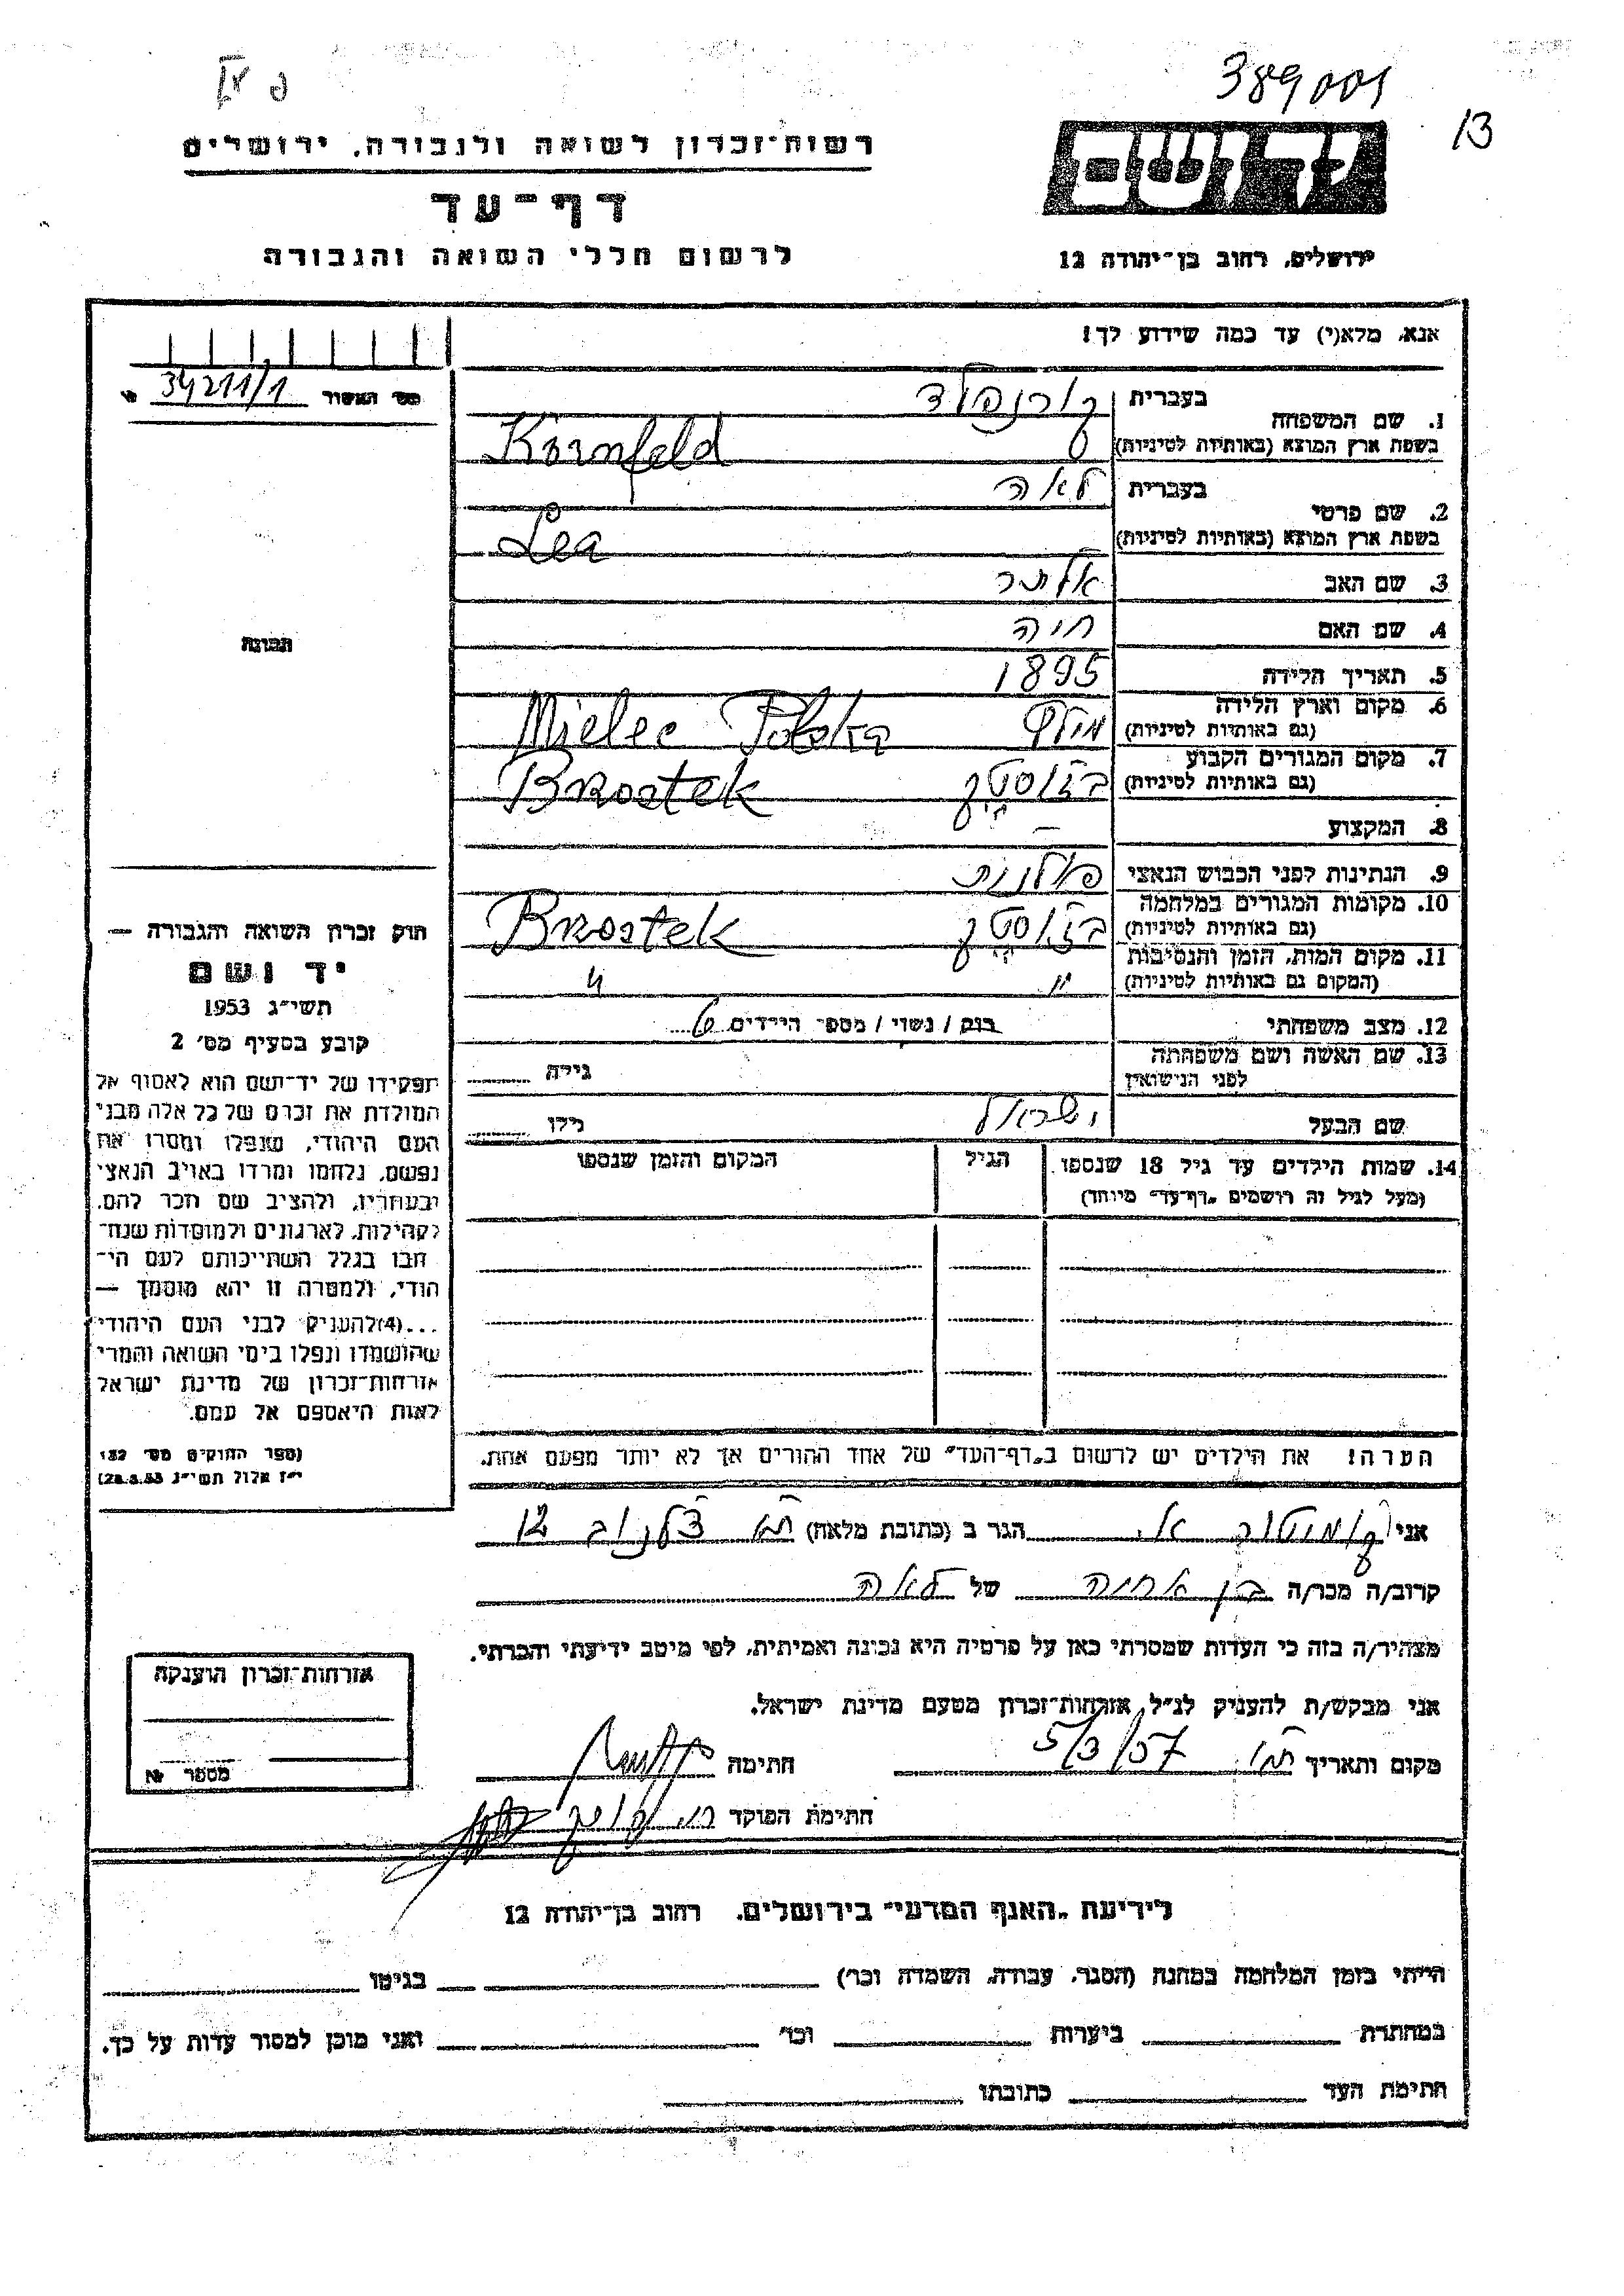 389009
13
רשות־זכרון לשואה ולגבורה, ירושלים
דף־עד
לרשום חללי השואה והגבורה
יד ושם
ירושלים, רחוב בן־יהודה 12
אנא, מלא(י) עד כמה שידוע לך!
מס' האשור 34211/1 №
1. שם המשפחה בעברית קורנפלד
בשפת ארץ המוצא (באותיות לטיניות) Kornfeld
2. שם פרטי בעברית לאה
בשפת ארץ המוצא (באותיות לטיניות) Lea
3. שם האב אלתר
4. שם האם חיה
5. תאריך הלידה 1895
6. מקום וארץ הלידה
(גם באותיות לטיניות) מילץ Mielec Polska
7. מקום המגורים הקבוע
(גם באותיות לטיניות) בז'וסטק Brzostek
8. המקצוע —
9. הנתינות לפני הכבוש הנאצי פולנית
10. מקומות המגורים במלחמה
(גם באותיות לטיניות) בז'וסטק Brzostek
11. מקום המות, הזמן והנסיבות
(המקום גם באותיות לטיניות) " "
12. מצב משפחתי רווק / נשוי / מספר הילדים
13. שם האשה ושם משפחתה
לפני הנישואין גילה
שם הבעל ישראל גילו
14. שמות הילדים עד גיל 18 שנספו הגיל המקום והזמן שנספו
(מעל לגיל זה רושמים "דף־עד" מיוחד)
הערה! את הילדים יש לרשום ב"דף־העד" של אחד ההורים אך לא יותר מפעם אחת.
תמונה
חוק זכרון השואה והגבורה —
יד ושם
תשי"ג 1953
קובע בסעיף מס' 2
תפקידו של יד־ושם הוא לאסוף אל
המולדת את זכרם של כל אלה מבני
העם היהודי, שנפלו ומסרו את
נפשם, נלחמו ומרדו באויב הנאצי
ובעוזריו, ולהציב שם וזכר להם,
לקהילות, לארגונים ולמוסדות שנח־
רבו בגלל השתייכותם לעם הי־
הודי, ולמטרה זו יהא מוסמך —
...(4) להעניק לבני העם היהודי
שהושמדו ונפלו בימי השואה והמרי
אזרחות־זכרון של מדינת ישראל
לאות היאספם אל עמם.
(ספר החוקים מס' 132
י"ז אלול תשי"ג 28.8.53)
אני הגר ב (כתובת מלאה) ת"א 12
קרוב/ה מכר/ה בן אחיה של לאה
מצהיר/ה בזה כי העדות שמסרתי כאן על פרטיה היא נכונה ואמיתית, לפי מיטב ידיעתי והכרתי.
אני מבקש/ת להעניק לנ"ל אזרחות־זכרון מטעם מדינת ישראל.
מקום ותאריך ת"א 5/3/57 חתימה
חתימת הפוקד
אזרחות־זכרון הוענקה
מספר №
לידיעת "האגף המדעי" בירושלים, רחוב בן־יהודה 12
הייתי בזמן המלחמה במחנה (הסגר, עבודה, השמדה וכו') בגיטו
במחתרת ביערות וכו' ואני מוכן למסור עדות על כך.
חתימת העד כתובתו